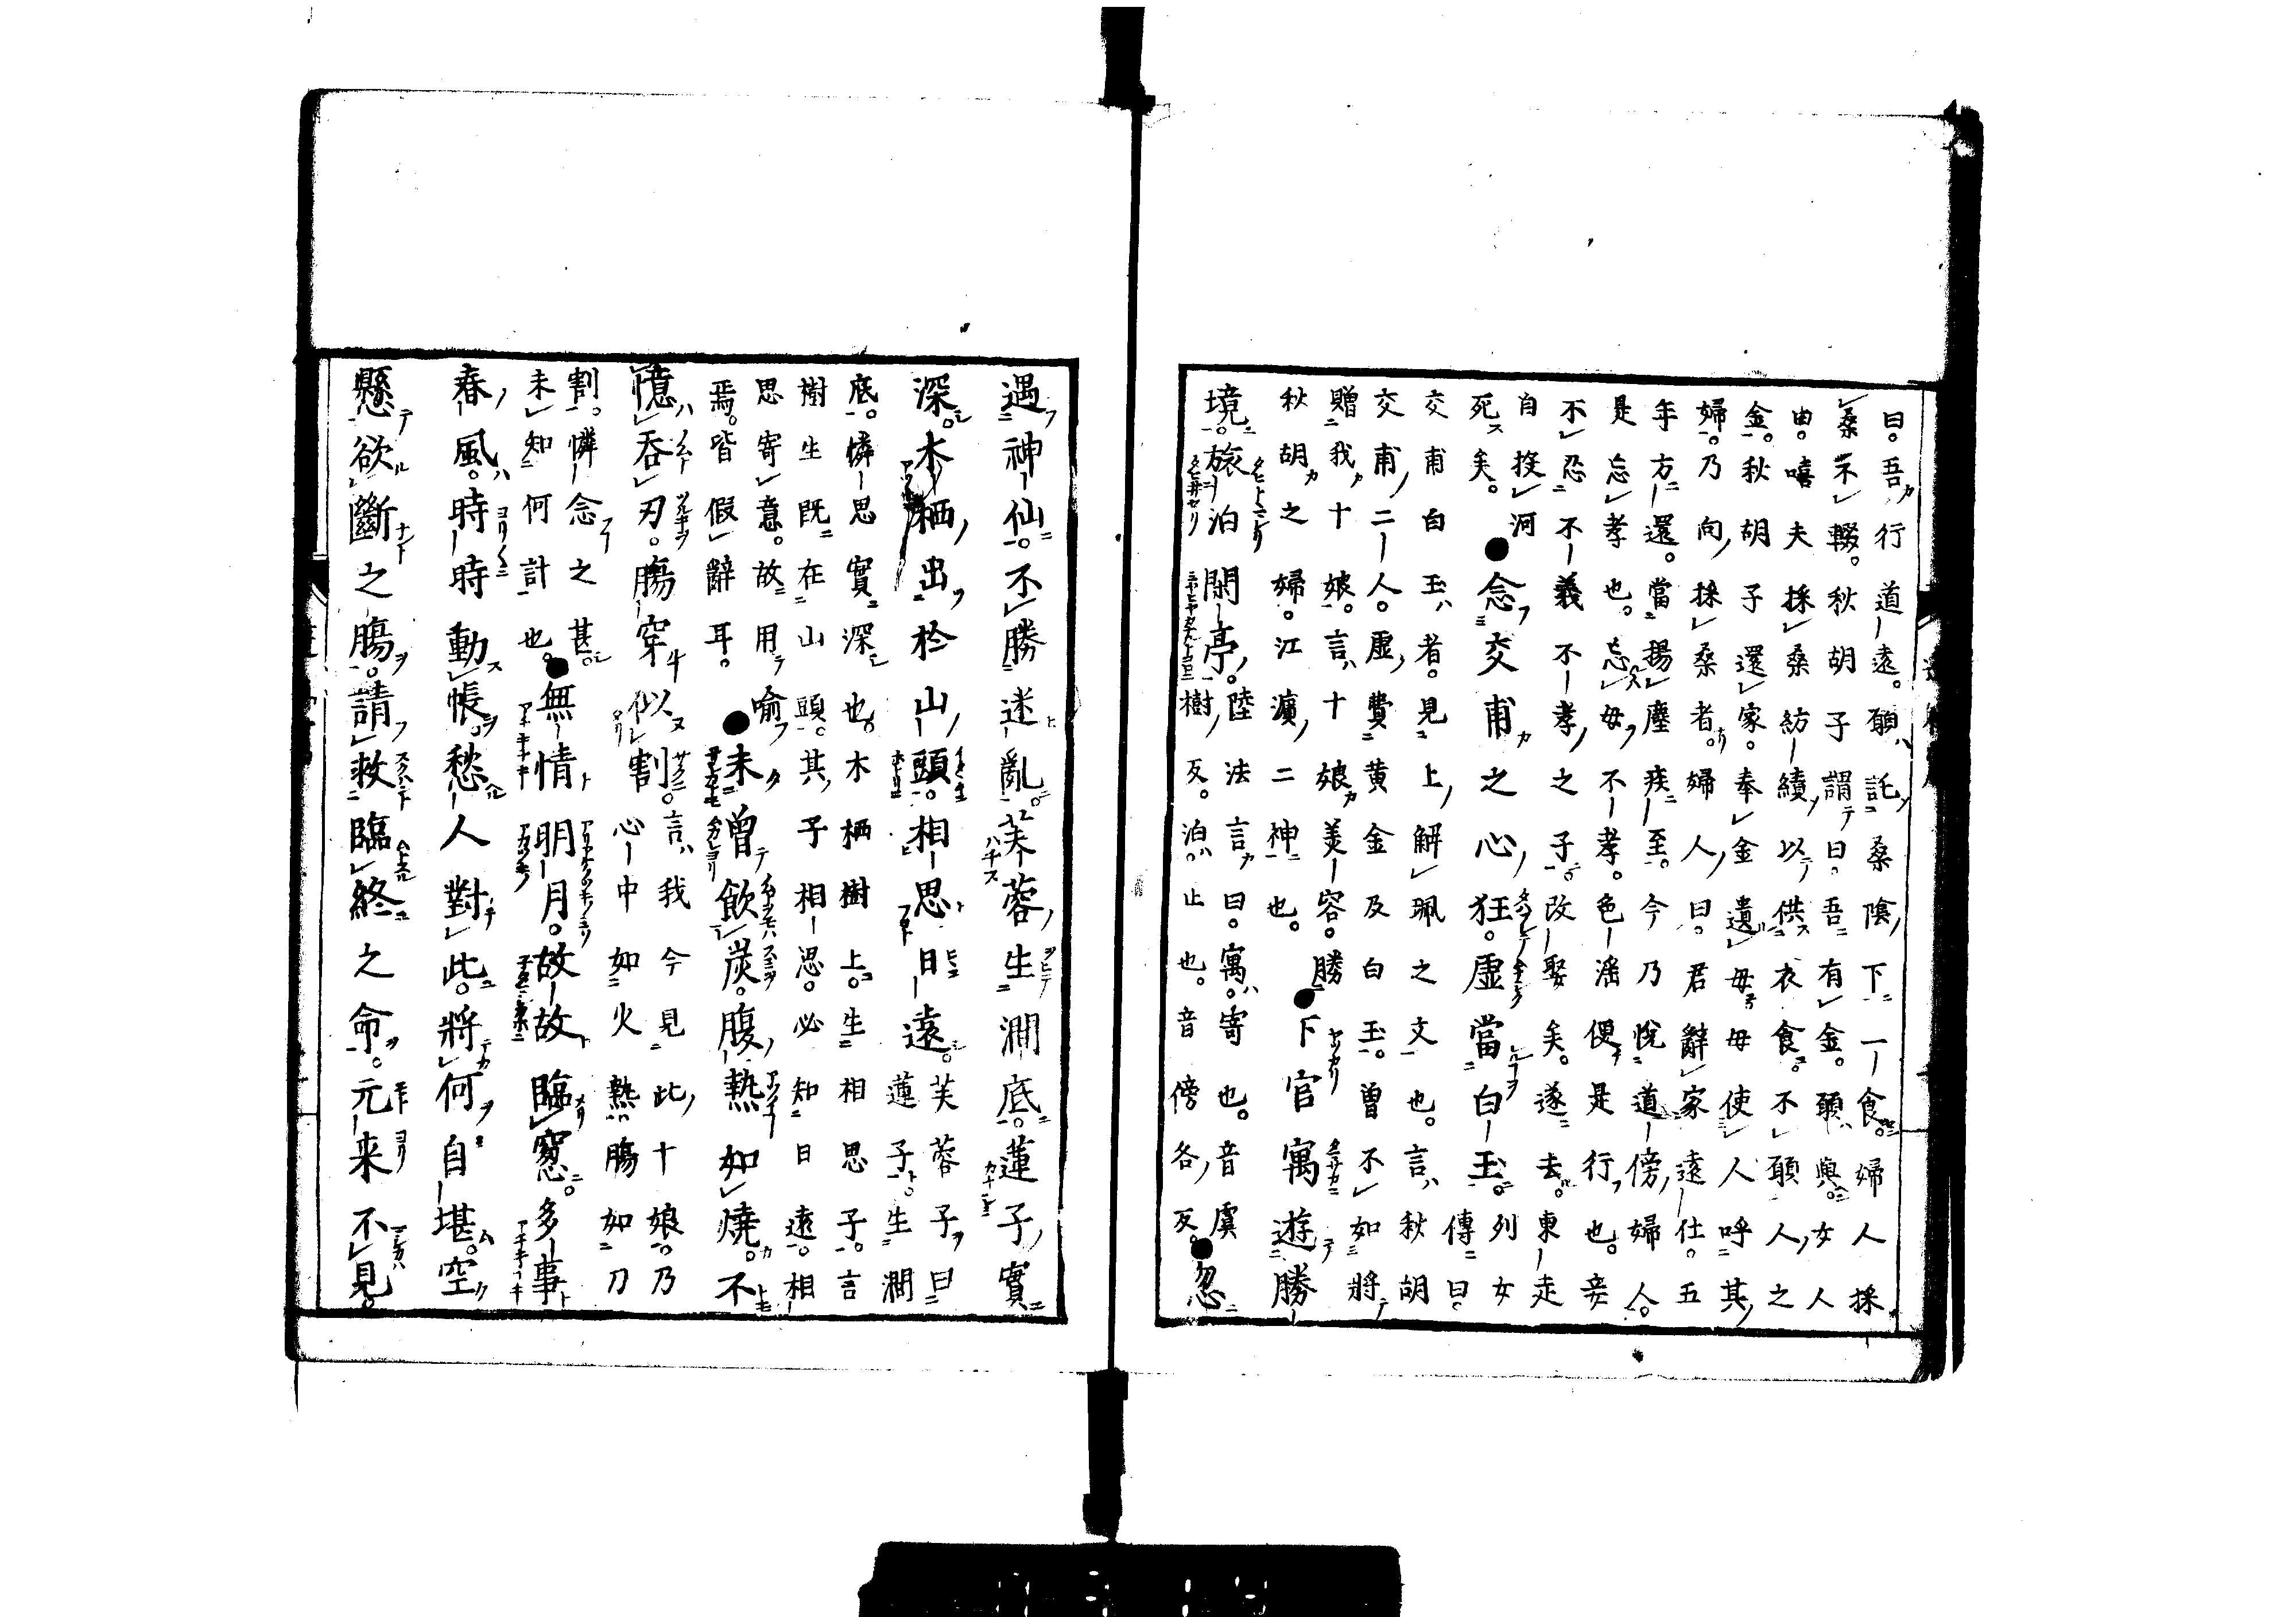 曰吾行道遠願託桑陰下一食婦人採
桑不輟秋胡子謂曰吾有金願與女人
曲嘻夫採桑紡績以供衣食不願人之
金秋胡子還家奉金遺母母使人呼其
婦乃向採桑者婦人曰君辭家遠仕五
年方還當揚塵疾至今乃悅道傍婦人
是忘孝也忘母不孝色滛便是行也妾
不忍不義不孝之子改娶矣遂去東走
自投河
死矣
列女
傳曰
念交甫之心狂虛當白玉
交甫白玉者見上解珮之文也言秋胡
交甫二人虛費黃金及白玉曾不如將
贈我十娘言十娘美容勝
秋胡之婦江濵二神也
下官寓遊勝
境旅泊閑亭
陸法言曰寓寄也音虞
樹反泊止也音傍各反
忽
遇神仙不勝迷亂芙蓉生澗底蓮子實
深木栖出於山頭相思日遠
芙蓉子曰蓮子生澗
底憐思實深也木栖樹上生相思子言
樹生既在山頭其子相思必知日遠相
思寄意故用喻
焉皆假辭耳
未曾飲炭腹熱如燒不
憶吞刃腸穿似割
言我今見此十娘乃
心中如火熱腸如刀
割憐念之甚
未知何計也
無情明月故故臨窓多事
春風時時動帳愁人對此將何自堪空
懸欲斷之腸請救臨終之命元来不見